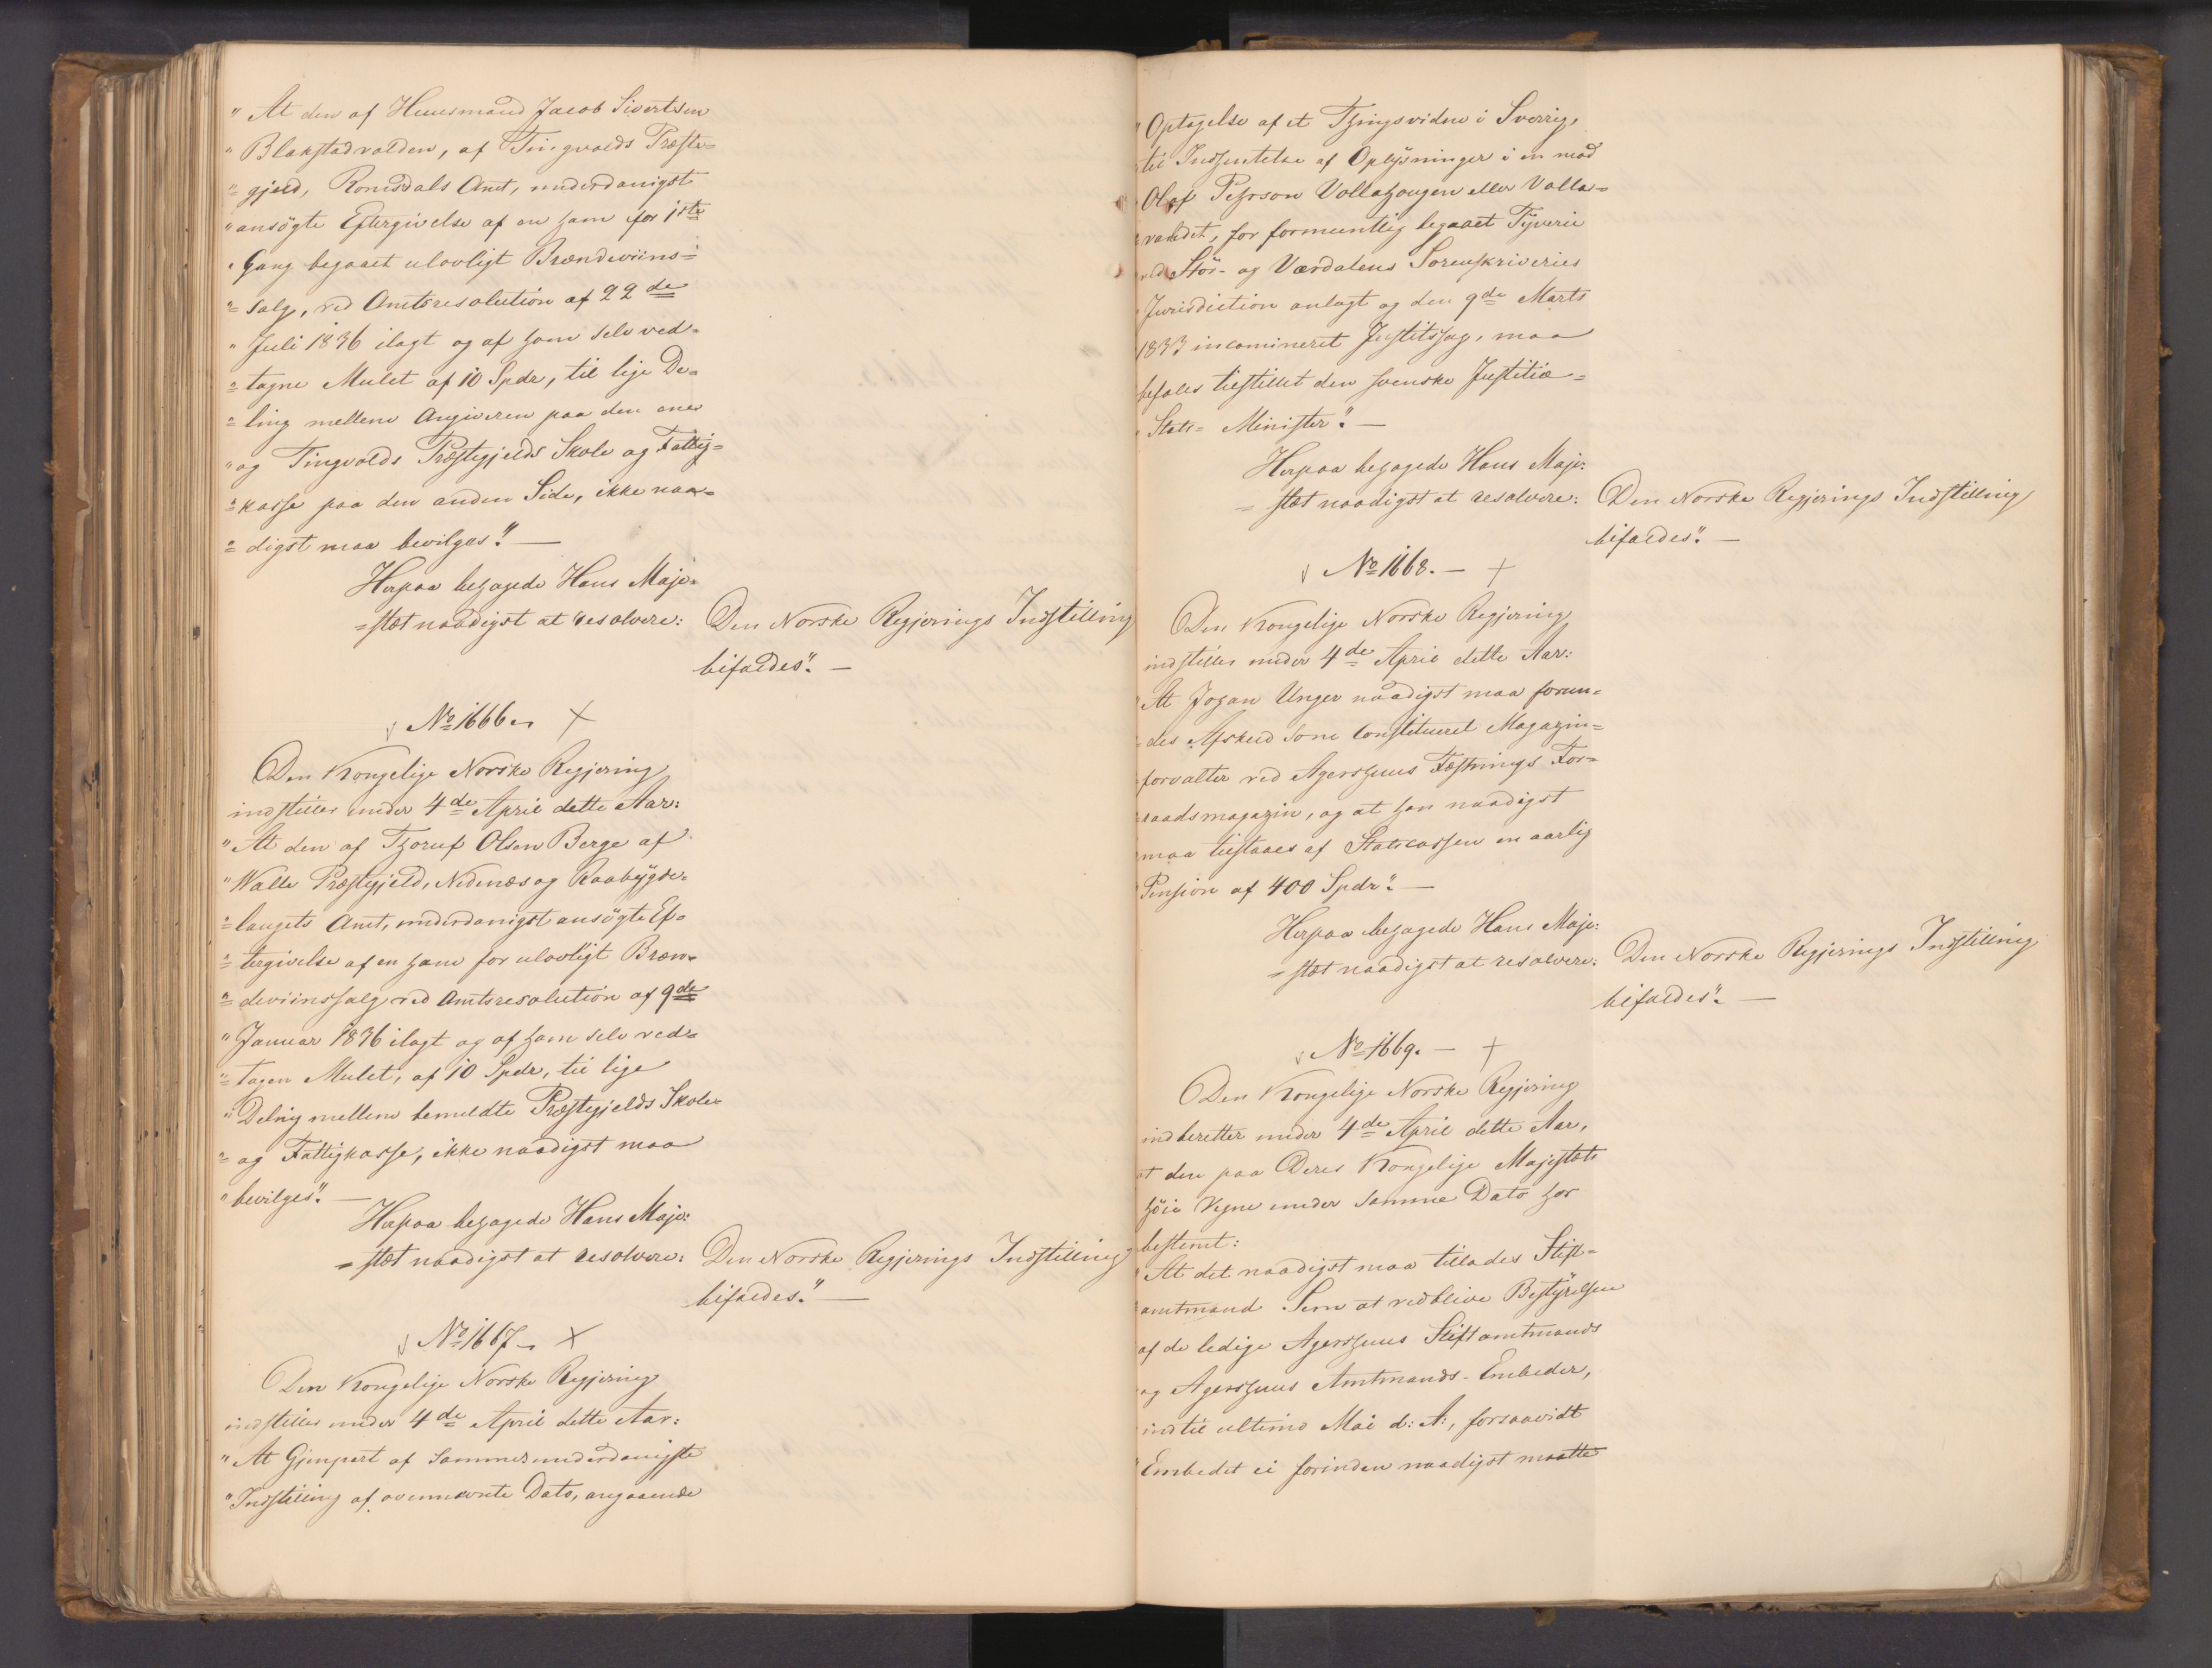 "At den af Huusmand Jacob Sivertsen
"Blakstadvolden, af Tingvolds Præste=
"=gjeld, Romsdals Amt, underdanigst
"ansögte Eftergivelse af en ham for 1ste
"Gang begaaet ulovligt Brændeviins=
"=salg, ved Amtsresolution af 22de
"Juli 1836 ilagt og af ham selv ved=
"=tagne Mulct af 10 Spdr, til lige De=
"=ling mellem Angiveren paa den ene
"og Tingvolds Præstegjelds Skole og Fattig=
"=kasse paa den anden Side, ikke naa=
"=digst maa bevilges". —
Herpaa behagede Hans Maje=
=stæt naadigst at resolvere: Den Norske Regjerings Indstilling
bifaldes". —
No 1666. ×
Den Kongelige Norske Regjering
indstiller under 4de April dette Aar:
"At den af Thoruf Olsen Berge af
"Walle Præstegjeld, Nedenæs og Raabygde=
"=laugets Amt, underdanigst ansögte Ef=
"=tergivelse af en ham for ulovligt Bræn=
"=deviinssalg ved Amtsresolution af 9de
"Januar 1836 ilagt og af ham selv ved=
"=tagen Mulct, af 10 Spdr, til lige
"Deling mellem bemeldte Præstegjelds Skole=
"=og Fattigkasse, ikke naadigst maa
"bevilges". —
Herpaa behagede Hans Maje=
=stæt naadigst at resolvere: Den Norske Regjerings Indstilling
bifaldes". —
No 1667. ×
Den Kongelige Norske Regjering
indstiller under 4de April dette Aar:
"At Gjenpart af Sammes underdanigste
"Indstilling af ovennævnte Dato, angaaende
"Optagelse af et Thingsvidne i Sverrig,
"til Indhentelse af Oplysninger i en mod
"Olof Pehrson Vollahaugen eller Volla=
"=valdet, for formeentlig begaaet Tyverie
"ved Stör- og Værdalens Sorenskriveries
"Jurisdiction anlagt og den 9de Marts
"1833 incamineret Justitssag, maa
befales tilstillet den svenske Justitiæ=
"Stats=Minister". —
Herpaa behagede Hans Maje=
=stæt naadigst at resolvere: Den Norske Regjerings Indstilling
bifaldes". —
No 1668. — +
Den Kongelige Norske Regjering
indstiller under 4de April dette Aar:
"At Johan Unger naadigst maa forun=
=des Afsked som constitueret Magazin=
forvalter ved Agershuus Fæstnings For=
raadsmagazin, og at han naadigst
maa tilstaaes af Statscassen en aarlig
Pension af 400 Spdr". —
Herpaa behagede Hans Maje=
=stæt naadigst at resolvere: Den Norske Regjerings Indstilling
bifaldes". —
No 1669. — +
Den Kongelige Norske Regjering
indberetter under 4de April dette Aar,
at den paa Deres Kongelige Majestæts
höie Vegne under samme Dato har
bestemt:
"At det naadigst maa tillades Stift=
"amtmand Sem at vedblive Bestyrelsen
"af de ledige Agershuus Stiftamtmands
"og Agershuus Amtmands-Embeder,
"indtil ultimo Mai d: A:, forsaavidt
"Embedet ei forinden naadigst maatte